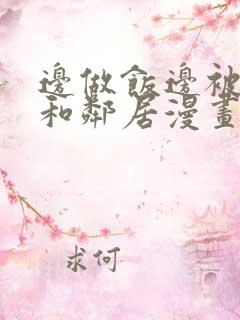 邊做飯邊被
和鄰居漫畫
求何